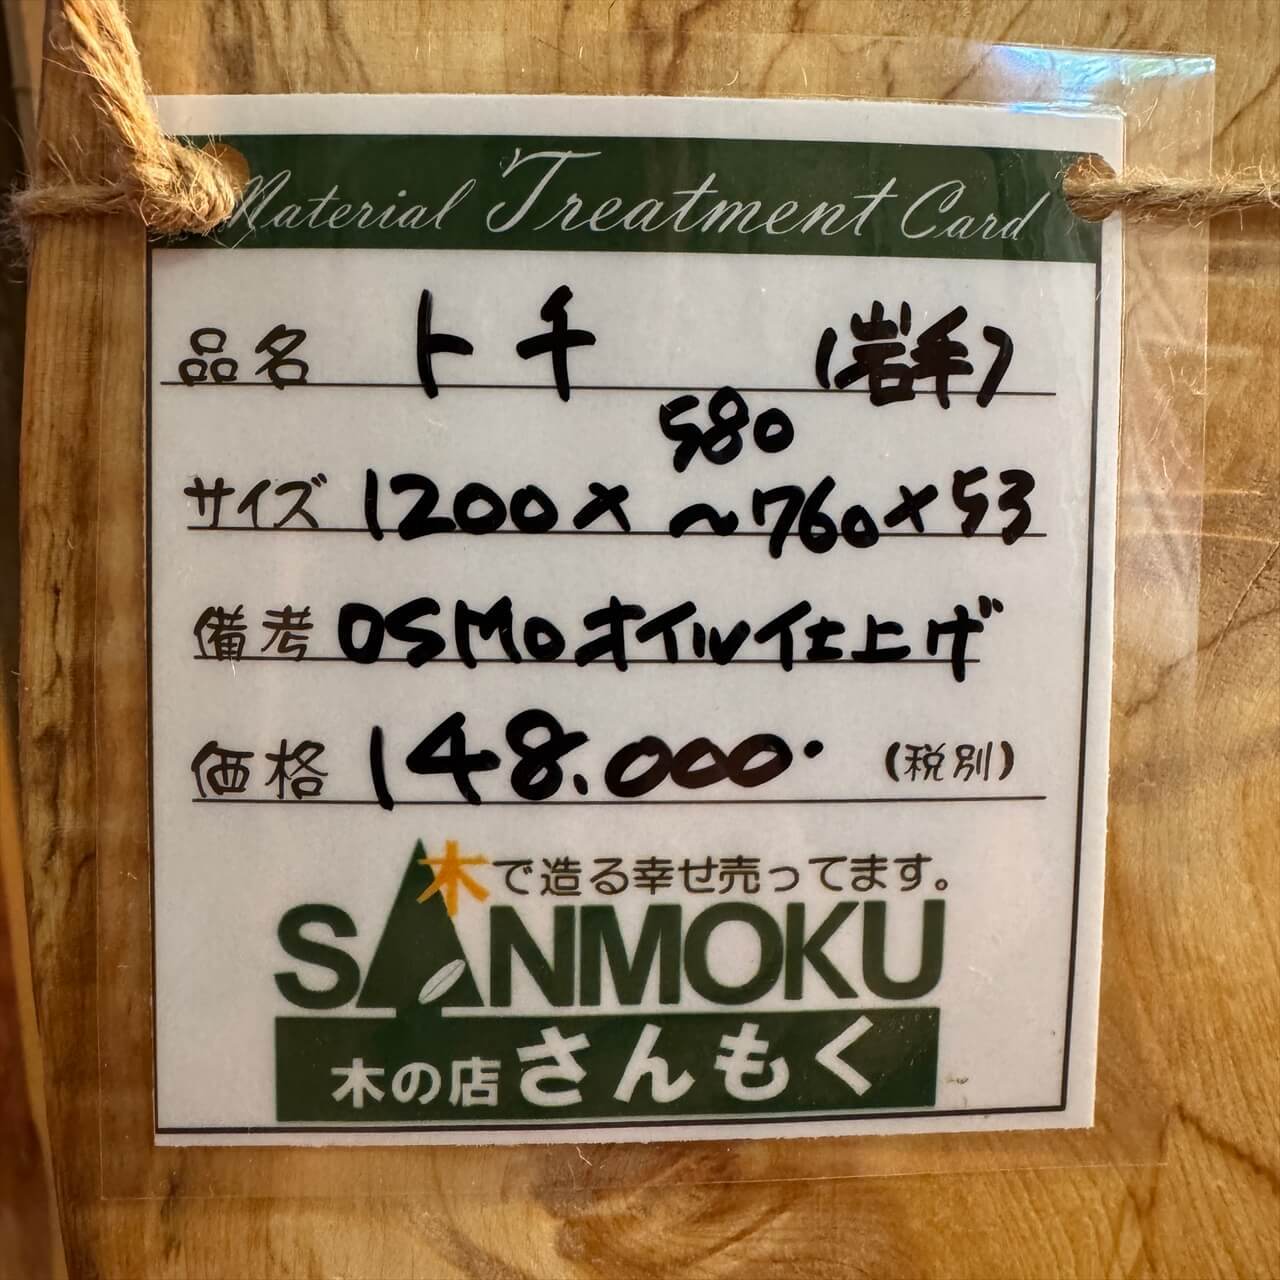 Material Treatment Card
品名 トチ (岩手)
580
サイズ 1200×～760×53
備考 OSMOオイル仕上げ
価格 148.000. (税別)
木で造る幸せ売ってます。
SANMOKU
木の店さんもく